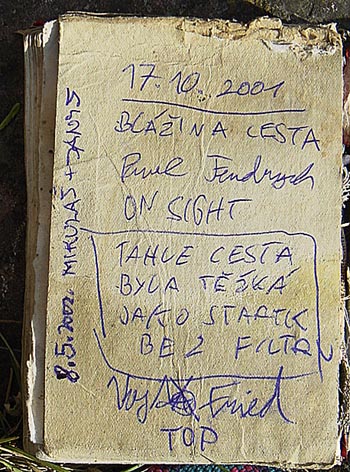 17.10. 2001
BLÁŽINA CESTA
Pavel Fendrych
ON SIGHT
TAHLE CESTA
BYLA TĚŽKÁ
JAKO STARTK
BEZ FILTRU
Fried
TOP
8.5.2002 MIKULÁŠ +